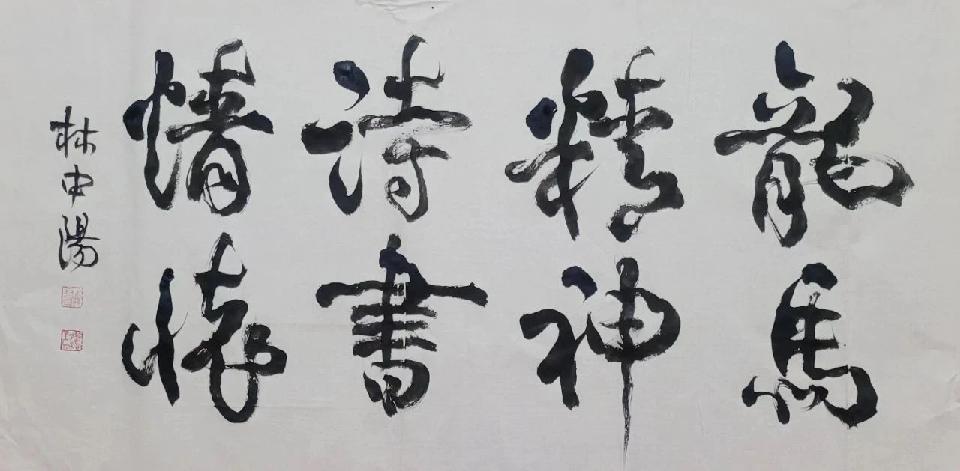 龍馬
精神
詩書
情懷
林中陽